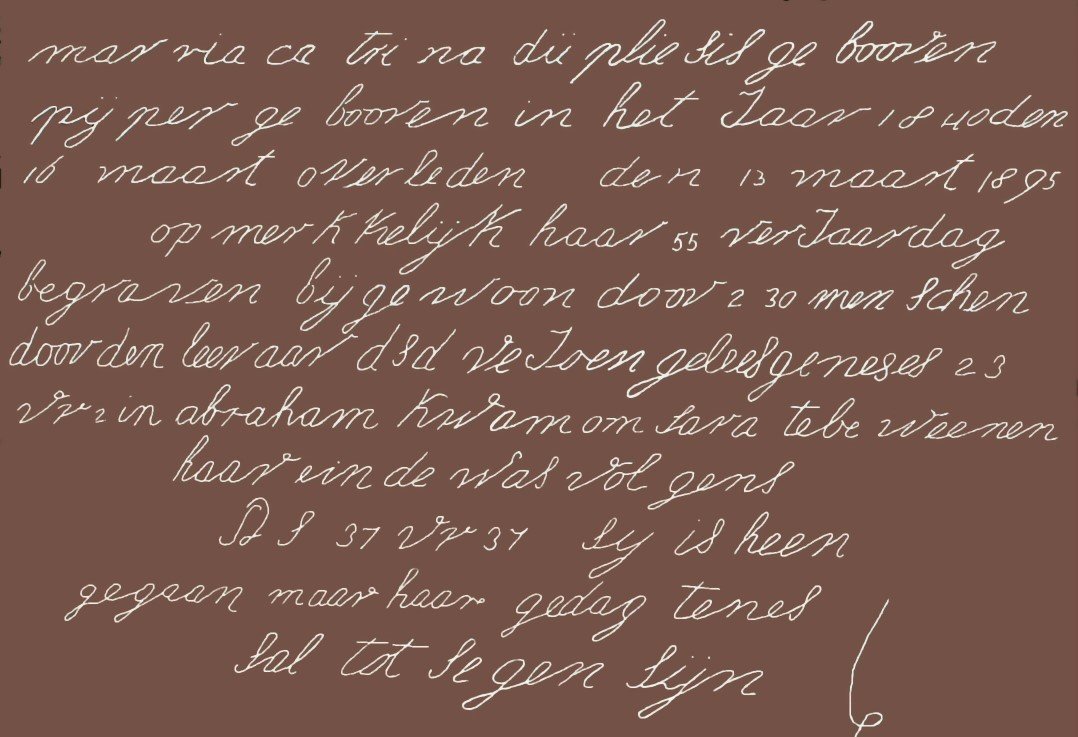 mar ria ca tri na dü plie sis ge booren
pij per ge booren in het Jaar 18 40 den
16 maart overleden den 13 maart 1895
op mer kkelijk haar 55 verJaardag
begraven bij ge woon door 2 30 men schen
door den leer aar d s d ve Joen gelees geneses 23
vr 2 in abraham kwam om sara te be weenen
haar ein de was vol gens
Ps 37 vr 37 sy is heen
gegaan maar haar gedag tenes
sal tot se gen sijn